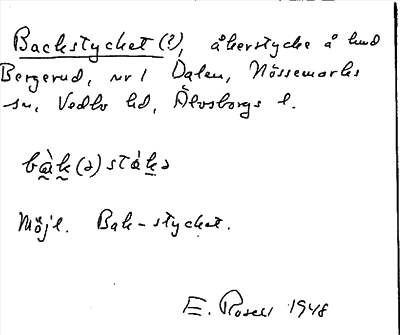 Backstycket (?), åkerstycke å hmd
Bergerud, nr 1 Dalen, Nössemarks
sn, Vedbo hd, Älvsborgs l.
bàk(ə)stákə
Möjl. Bak-stycket.
E. Rosell 1948